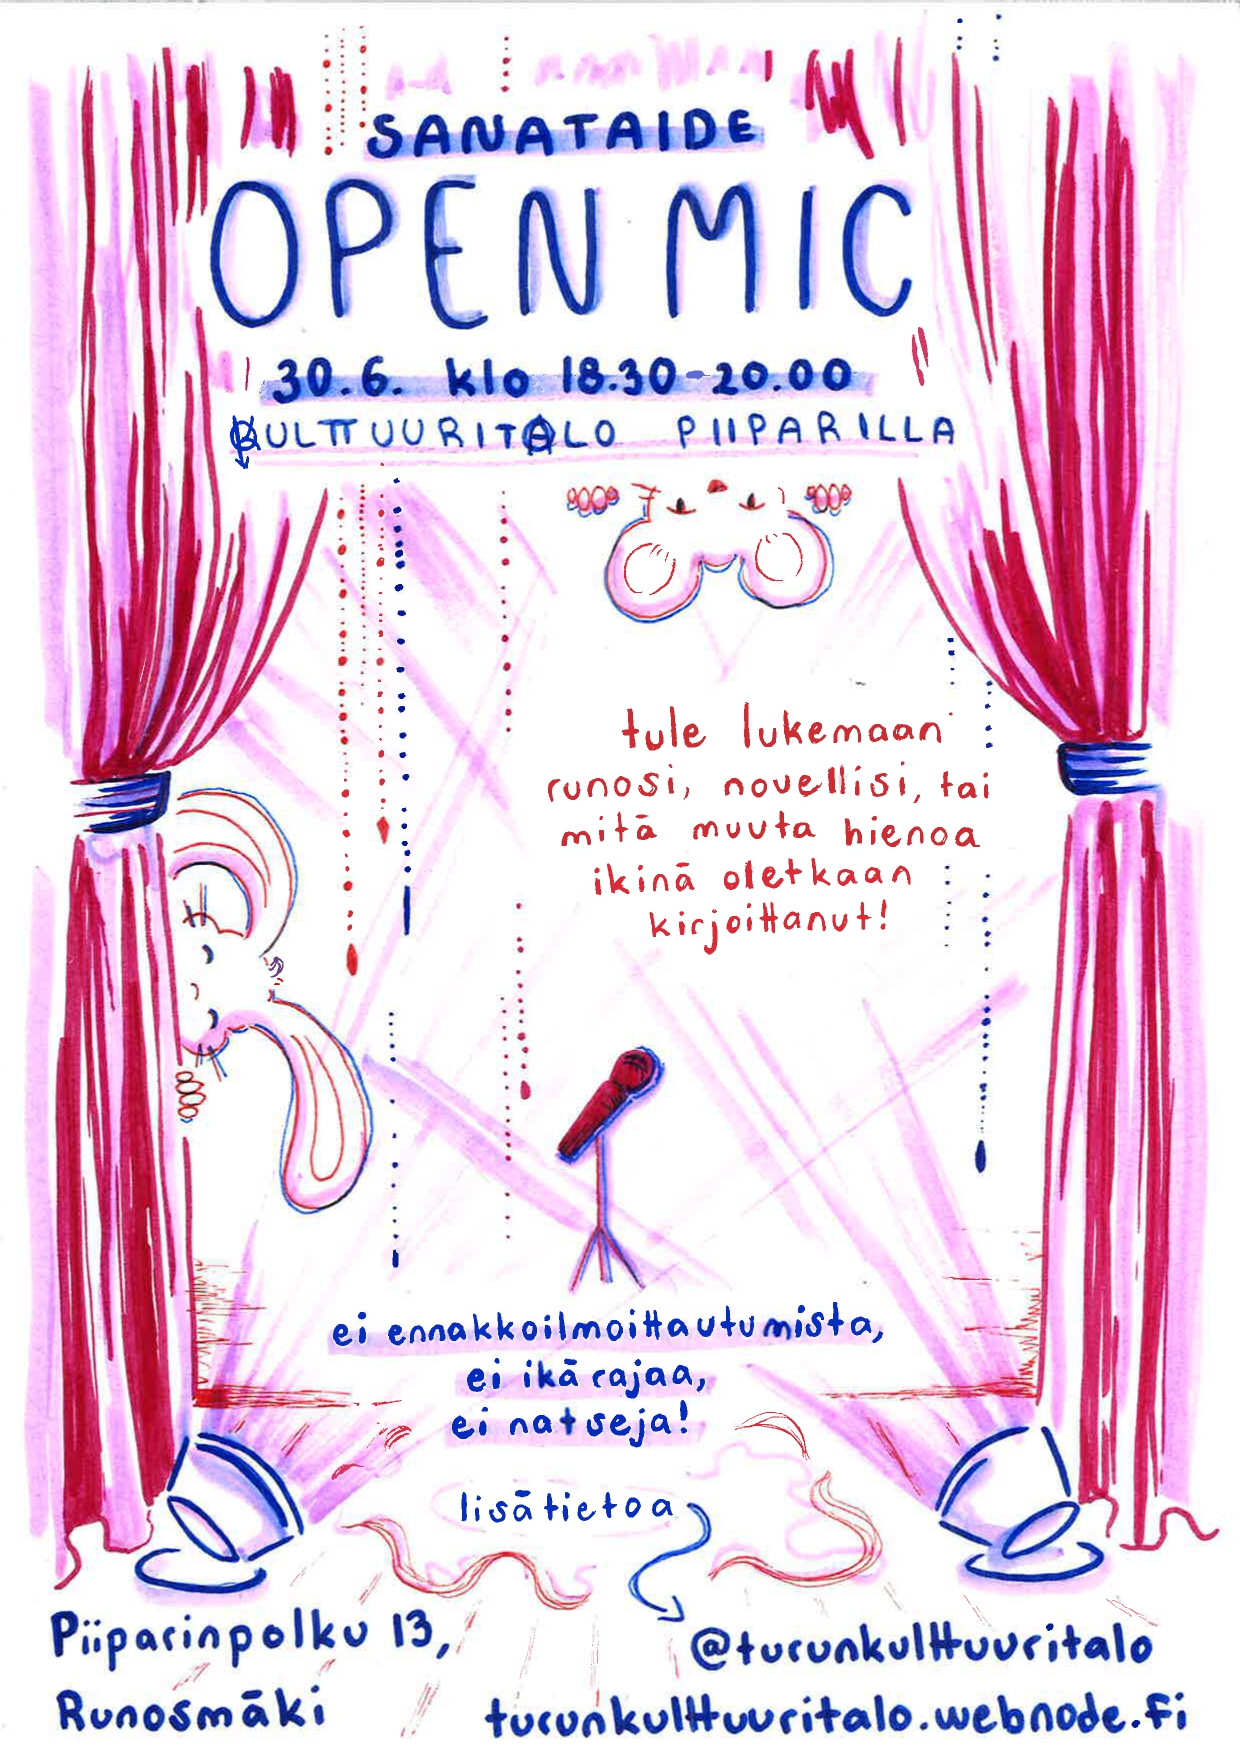 SANATAIDE
OPEN MIC
30.6. klo 18.30-20.00
KULTTUURITALO PIIPARILLA
tule lukemaan
runosi, novellisi, tai
mitä muuta hienoa
ikinä oletkaan
kirjoittanut!
ei ennakkoilmoittautumista,
ei ikärajaa,
ei natseja!
lisätietoa
Piiparinpolku 13,
Runosmäki
@turunkulttuuritalo
turunkulttuuritalo.webnode.fi